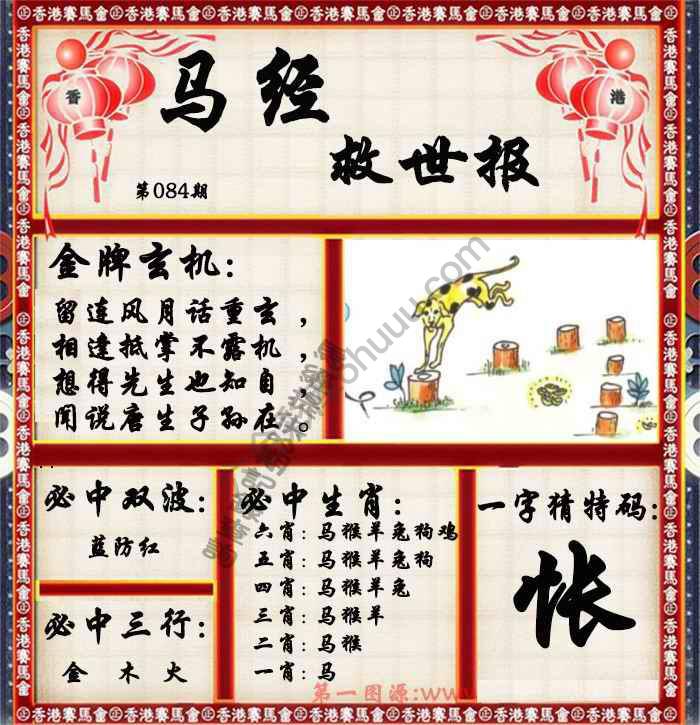 香港賽馬會
香
港
马经
救世报
第084期
金牌玄机：
留连风月话重玄，
相逢抵掌不露机，
想得先生也知自，
闻说唐生子孙在。
必中双波：
蓝防红
必中三行：
金 木 火
必中生肖：
六肖：马猴羊兔狗鸡
五肖：马猴羊兔狗
四肖：马猴羊兔
三肖：马猴羊
二肖：马猴
一肖：马
一字猜特码：
怅
第一图源:www